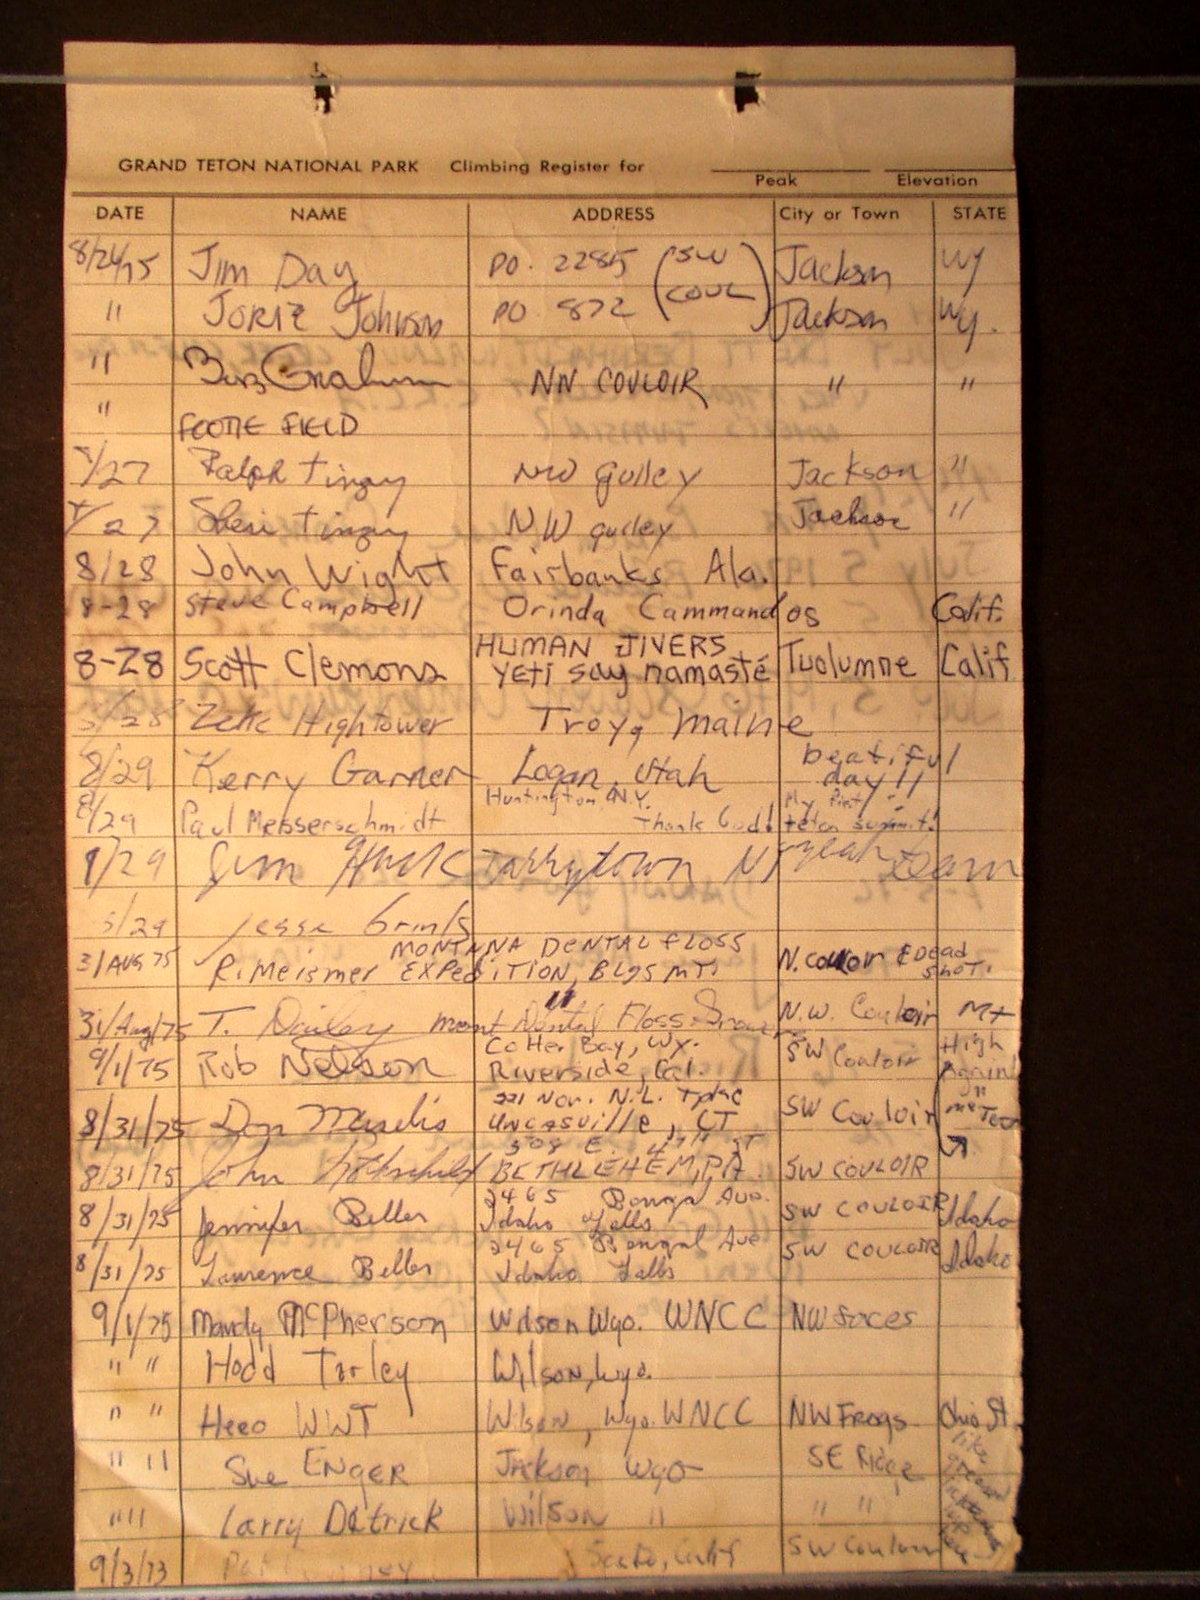 GRAND TETON NATIONAL PARK Climbing Register for
Peak Elevation
DATE NAME ADDRESS City or Town STATE
8/26/75 Jim Day PO. 2285 (SW COUL) Jackson Wy
" Johnson PO 872 Jackson Wy.
" Graham NW COULOIR " "
" FOOTE FIELD
/27 Ralph Tingey NW gulley Jackson "
/27 Sheri Tingey NW gulley Jackson "
8/28 John Wight Fairbanks Ala.
8-28 Steve Campbell Orinda Cammandos Calif.
HUMAN JIVERS
8-28 Scott Clemons Yeti say namasté Tuolumne Calif
/28 Hightower Troy, Maine
8/29 Kerry Garner Logan, Utah beatiful day!!
Huntington N.Y. My first
8/29 Paul Messerschmidt Thank God! teton summit!
/29 Jim Tarrytown NY yeah team
/29 Jesse
MONTANA DENTAL FLOSS
31 AUG 75 R. Meismer EXPEDITION, BLGS MT. N. Couloir & Dead Shot.
"
31/Aug/75 T. Dailey Mont Dental Floss N.W. Couloir Mt
Colter Bay, Wy. High
9/1/75 Rob Nelson Riverside, Cal. SW Couloir Again!
221 Nor. N.L.
8/31/75 Don Uncasville, CT SW Couloir
508 E. ST
8/31/75 John BETHLEHEM, PA. SW COULOIR
2465 Bengal Ave.
8/31/75 Jennifer Beller Idaho Falls SW COULOIR Idaho
2465 Bengal Ave
8/31/75 Lawrence Beller Idaho Falls SW COULOIR Idaho
9/1/75 Mandy McPherson Wilson Wyo. WNCC NW faces
" " Hodd Wilson, Wyo.
" " WWT Wilson, Wyo. WNCC NW Frogs Ohio St
" " Sue Enger Jackson Wyo SE Ridge like greased
" " Larry Detrick Wilson " " "
9/3/73 Calif SW Couloir